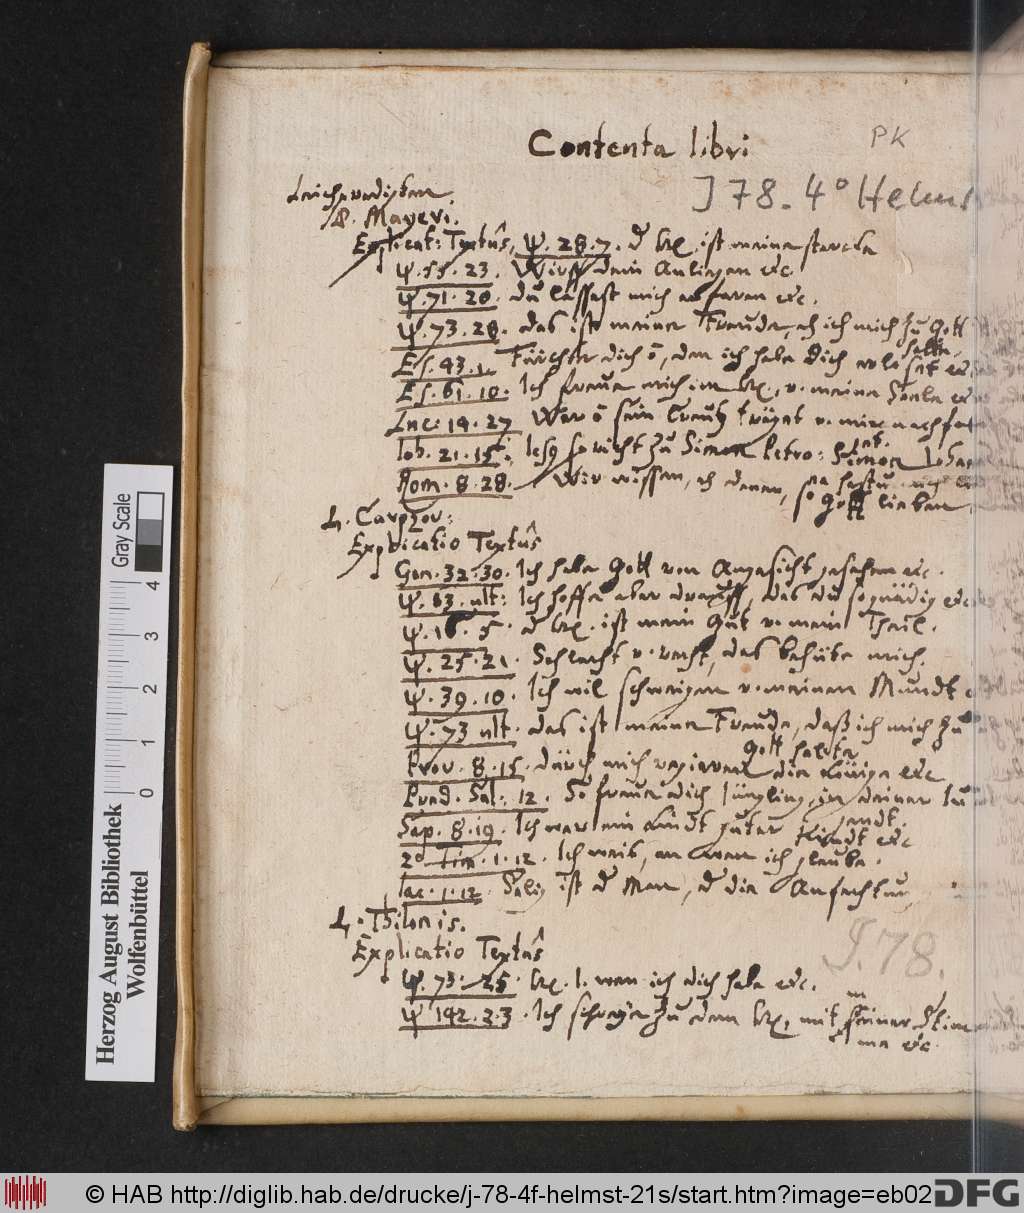 Contenta libri
PK
J 78. 4° Helmst
Leichpredigten
D. Mayeri.
Explicat: Textûs, Ψ. 28. 7. d H. ist meine stercke
Ψ. 55. 23. Wirff dein Anligen etc.
Ψ. 71. 20. du lässest mich erfaren etc.
Ψ. 73. 28. das ist meine Freude, ich mich zu Gott
halte.
Es. 43. 1. Fürchte dich, den ich habe dich erlöset etc.
Es. 61. 10. Ich freue mich im H., v. meine Seele etc
Luc. 14. 27 Wer sein Creutz trägt v. mir nachfol
Joh. 21. 15. spricht zu Simon Petro: Simon Joha
Rom. 8. 28. Wir wissen, denen, so Gott lieben
L. Carpzov:
Explicatio Textûs
Gen. 32. 30. Ich habe Gott von Angesicht gesehen etc.
Ψ. 13. ult: Ich hoffe aber drauff, das du so gnädig etc
Ψ. 16. 5. d H. ist mein Gut v. mein Theil.
Ψ. 25. 21. Schlecht v. recht, das behüte mich.
Ψ. 39. 10. Ich wil schweigen v. meinen Mundt
Ψ. 73 ult. das ist meine Freude, daß ich mich zu
Gott halte
Prov. 8. 15. durch mich regieren die Könige etc
Pred. Sal: 12. So freue dich Jüngling, in deiner Ju
gendt.
Sap. 8. 19. Ich war ein Kindt guter
Kindt etc
2d Tim. 1. 12. Ich weis, an wen ich gleube.
Jac. 1. 12. Selig ist d Man, d die Anfechtung
L. Thilonis.
Explicatio Textûs
J. 78.
Ψ. 73. 25. H. wen ich dich habe etc.
Ψ 142. 2. 3. Ich schreye zu dem H. mit meiner Stim
me etc.
Gray Scale
4
3
2
1
0
Herzog August Bibliothek
Wolfenbüttel
© HAB http://diglib.hab.de/drucke/j-78-4f-helmst-21s/start.htm?image=eb02
DFG